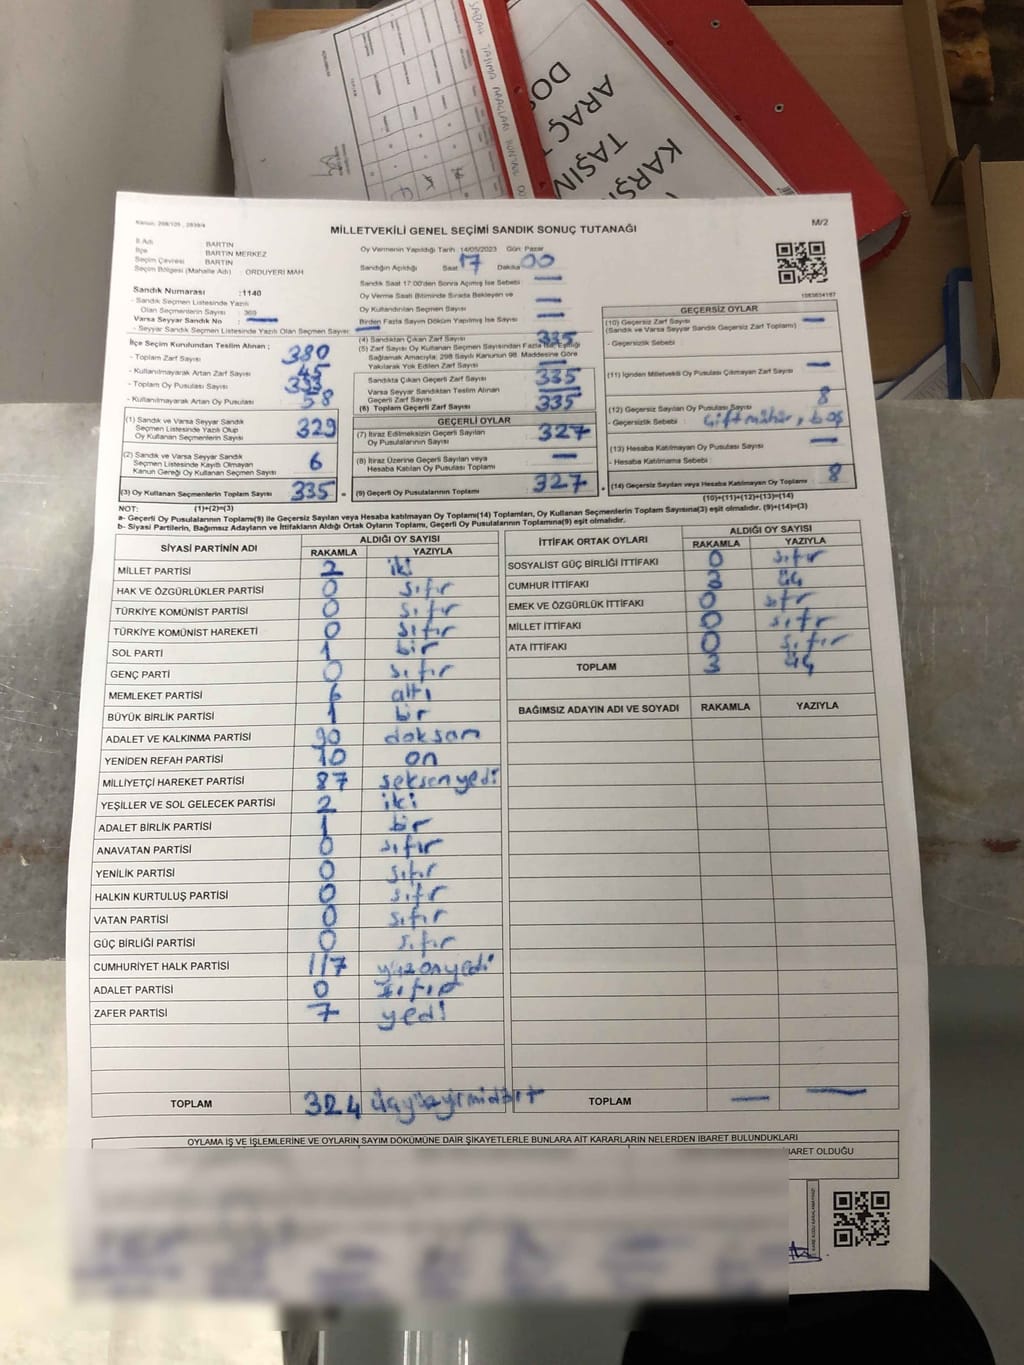 SABAH TAŞIMA ARAÇLARI
DOS
ARAÇ T
TAŞIN
KARŞI
Kanun: 298/105 , 2839/4
M/2
MİLLETVEKİLİ GENEL SEÇİMİ SANDIK SONUÇ TUTANAĞI
İl Adı BARTIN
İlçe BARTIN MERKEZ
Seçim Çevresi BARTIN
Seçim Bölgesi (Mahalle Adı) : ORDUYERI MAH
Oy Vermenin Yapıldığı Tarih :14/05/2023 Gün: Pazar
Sandığın Açıldığı Saat 17 Dakika 00
Sandık Saat 17:00'den Sonra Açılmış İse Sebebi : —
Oy Verme Saati Bitiminde Sırada Bekleyen ve
Oy Kullandırılan Seçmen Sayısı —
Birden Fazla Sayım Döküm Yapılmış İse Sayısı —
Sandık Numarası :1140
- Sandık Seçmen Listesinde Yazılı
Olan Seçmenlerin Sayısı 369
Varsa Seyyar Sandık No —
- Seyyar Sandık Seçmen Listesinde Yazılı Olan Seçmen Sayısı: —
İlçe Seçim Kurulundan Teslim Alınan ;
- Toplam Zarf Sayısı 380
- Kullanılmayarak Artan Zarf Sayısı 45
- Toplam Oy Pusulası Sayısı
- Kullanılmayarak Artan Oy Pusulası 58
(1) Sandık ve Varsa Seyyar Sandık
Seçmen Listesinde Yazılı Olup
Oy Kullanan Seçmenlerin Sayısı 329
(2) Sandık ve Varsa Seyyar Sandık
Seçmen Listesinde Kayıtlı Olmayan
Kanun Gereği Oy Kullanan Seçmen Sayısı 6
(3) Oy Kullanan Seçmenlerin Toplam Sayısı 335 =
(4) Sandıktan Çıkan Zarf Sayısı 335
(5) Zarf Sayısı Oy Kullanan Seçmen Sayısından Fazla İse, Eşitliği
Sağlamak Amacıyla; 298 Sayılı Kanunun 98. Maddesine Göre
Yakılarak Yok Edilen Zarf Sayısı
Sandıkta Çıkan Geçerli Zarf Sayısı 335
Varsa Seyyar Sandıktan Teslim Alınan
Geçerli Zarf Sayısı —
(6) Toplam Geçerli Zarf Sayısı 335
GEÇERLİ OYLAR
(7) İtiraz Edilmeksizin Geçerli Sayılan
Oy Pusulalarının Sayısı 327
(8) İtiraz Üzerine Geçerli Sayılan veya
Hesaba Katılan Oy Pusulası Toplamı —
(9) Geçerli Oy Pusulalarının Toplamı 327 +
GEÇERSİZ OYLAR
(10) Geçersiz Zarf Sayısı —
(Sandık ve Varsa Seyyar Sandık Geçersiz Zarf Toplamı)
- Geçersizlik Sebebi :
(11) İçinden Milletvekili Oy Pusulası Çıkmayan Zarf Sayısı —
(12) Geçersiz Sayılan Oy Pusulası Sayısı 8
- Geçersizlik Sebebi : Çift mühür, boş
(13) Hesaba Katılmayan Oy Pusulası Sayısı —
- Hesaba Katılmama Sebebi :
(14) Geçersiz Sayılan veya Hesaba Katılmayan Oy Toplamı 8
NOT: (1)+(2)=(3)
(10)+(11)+(12)+(13)=(14)
a- Geçerli Oy Pusulalarının Toplamı(9) ile Geçersiz Sayılan veya Hesaba katılmayan Oy Toplamı(14) Toplamları, Oy Kullanan Seçmenlerin Toplam Sayısına(3) eşit olmalıdır. (9)+(14)=(3)
b- Siyasi Partilerin, Bağımsız Adayların ve İttifakların Aldığı Ortak Oyların Toplamı, Geçerli Oy Pusulalarının Toplamına(9) eşit olmalıdır.
SİYASİ PARTİNİN ADI ALDIĞI OY SAYISI
RAKAMLA YAZIYLA
MİLLET PARTİSİ 2 iki
HAK VE ÖZGÜRLÜKLER PARTİSİ 0 sıfır
TÜRKİYE KOMÜNİST PARTİSİ 0 sıfır
TÜRKİYE KOMÜNİST HAREKETİ 0 sıfır
SOL PARTİ 1 bir
GENÇ PARTİ 0 sıfır
MEMLEKET PARTİSİ 6 altı
BÜYÜK BİRLİK PARTİSİ 1 bir
ADALET VE KALKINMA PARTİSİ 90 doksan
YENİDEN REFAH PARTİSİ 10 on
MİLLİYETÇİ HAREKET PARTİSİ 87 seksenyedi
YEŞİLLER VE SOL GELECEK PARTİSİ 2 iki
ADALET BİRLİK PARTİSİ 1 bir
ANAVATAN PARTİSİ 0 sıfır
YENİLİK PARTİSİ 0 sıfır
HALKIN KURTULUŞ PARTİSİ 0 sıfır
VATAN PARTİSİ 0 sıfır
GÜÇ BİRLİĞİ PARTİSİ 0 sıfır
CUMHURİYET HALK PARTİSİ 117 yüzonyedi
ADALET PARTİSİ 0 sıfır
ZAFER PARTİSİ 7 yedi
TOPLAM 324 üçyüzyirmidört
İTTİFAK ORTAK OYLARI ALDIĞI OY SAYISI
RAKAMLA YAZIYLA
SOSYALİST GÜÇ BİRLİĞİ İTTİFAKI 0 sıfır
CUMHUR İTTİFAKI 3 üç
EMEK VE ÖZGÜRLÜK İTTİFAKI 0 sıfır
MİLLET İTTİFAKI 0 sıfır
ATA İTTİFAKI 0 sıfır
TOPLAM 3 üç
BAĞIMSIZ ADAYIN ADI VE SOYADI RAKAMLA YAZIYLA
TOPLAM — —
OYLAMA İŞ VE İŞLEMLERİNE VE OYLARIN SAYIM DÖKÜMÜNE DAİR ŞİKAYETLERLE BUNLARA AİT KARARLARIN NELERDEN İBARET BULUNDUKLARI
BARET OLDUĞU